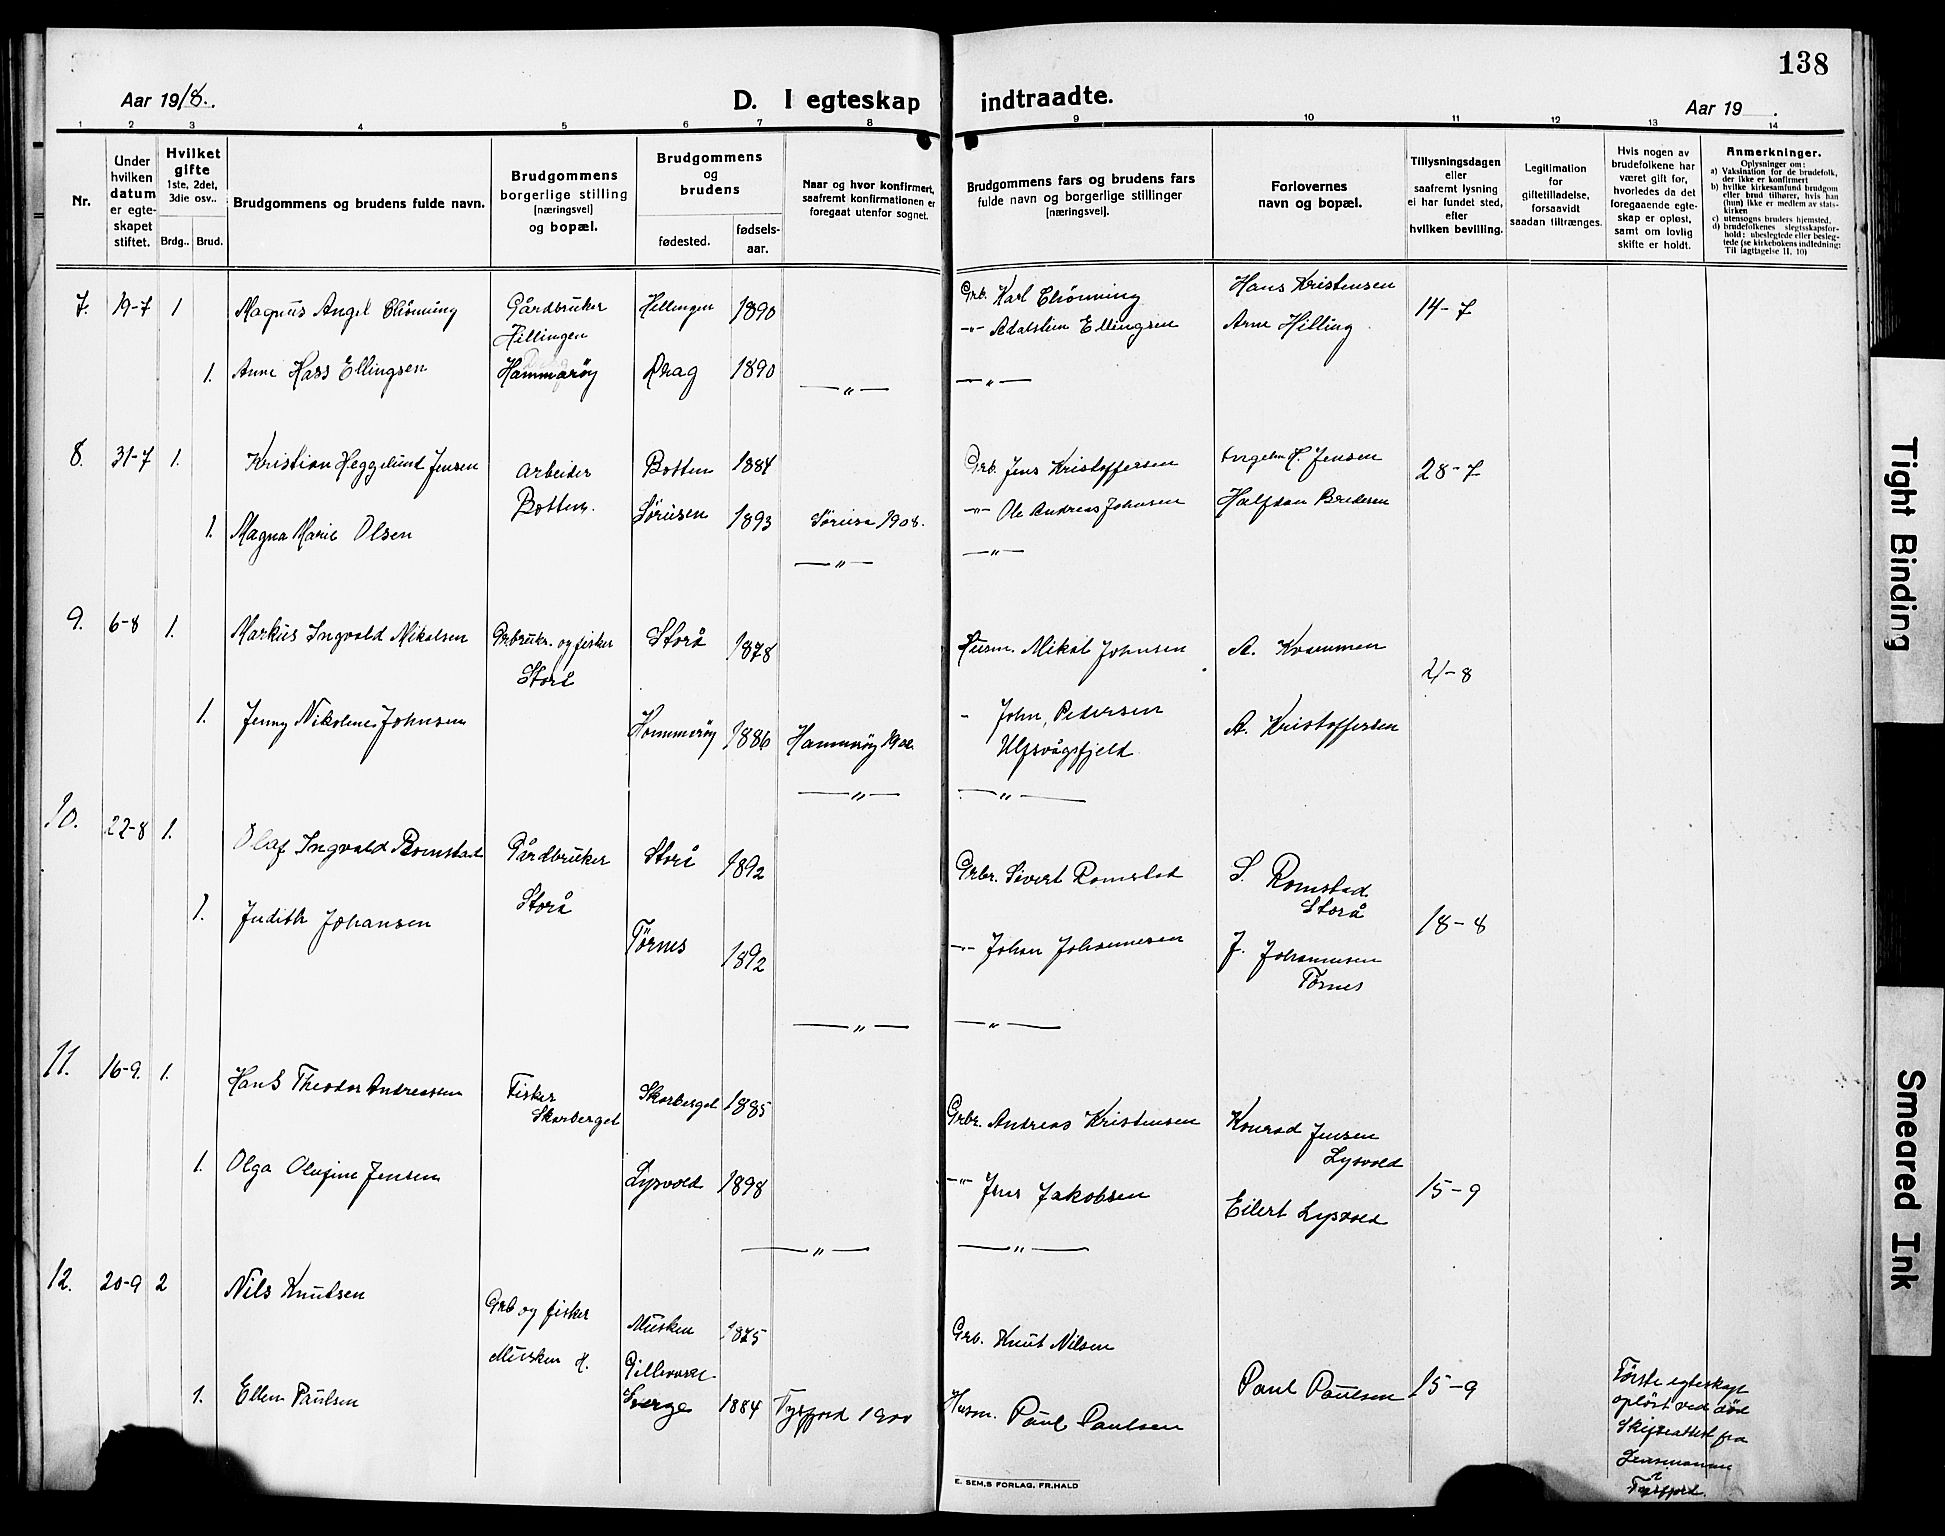 138
Aar 1918.
D. I egteskap indtraadte.
Aar 19 .
1 2 3 4 5 6 7 8 9 10 11 12 13 14
Nr.
Under hvilken datum er egteskapet stiftet.
Hvilket gifte 1ste, 2det, 3die osv..
Brdg.. Brud.
Brudgommens og brudens fulde navn.
Brudgommens borgerlige stilling (næringsvei) og bopæl.
Brudgommens og brudens
fødested. fødsels-aar.
Naar og hvor konfirmert, saafremt konfirmationen er foregaat utenfor sognet.
Brudgommens fars og brudens fars fulde navn og borgerlige stillinger (næringsvei).
Forlovernes navn og bopæl.
Tillysningsdagen eller saafremt lysning ei har fundet sted, efter hvilken bevilling.
Legitimation for giftetilladelse, forsaavidt saadan tiltrænges.
Hvis nogen av brudefolkene har været gift før, hvorledes da det foregaaende egteskap er opløst, samt om lovlig skifte er holdt.
Anmerkninger.
Oplysninger om:
a) Vaksination for de brudefolk, der ikke er konfirmert
b) hvilke kirkesamfund brudgom eller brud tilhører, hvis han (hun) ikke er medlem av statskirken
c) utensogns bruders hjemsted,
d) brudefolkenes slegtsskapsforhold: ubeslegtede eller beslegtede (se kirkebokens indledning: Til Iagttagelse II, 10)
7. 19-7 1 Magnus Angel Chönning Gårdbruker Hillingen 1890 Grb. Karl Chönning Hans Kristensen 14-7
Hillingen -"- Adalstein Ellingsen Arne Hilling
1. Anne Hass Ellingsen Hammarøy Drag 1890
— " — — " —
8. 31-7 1. Kristian Heggelund Jensen Arbeider Botten 1884 Grb. Jens Kristoffersen Ingebr. H. Jensen 28-7
Botten. Sørusen 1893 Sørusa 1908. -"- Ole Andreas Johnsen Halfdan Bredesen
1. Magna Marie Olsen
— " — — " —
9. 6-8 1. Markus Ingvald Mikalsen Grbrukr. og fisker Storå 1878 Husm. Mikal Johnsen A. Kvammen
Storå 21-8
1. Jenny Nikoline Johnsen Hammerøy 1886 Hammrøy 1902 - John Pedersen A. Kristoffersen
Ulfsvågfjeld
— " — — " —
10. 22-8 1. Olaf Ingvald Romstad Gårdbruker Storå 1892 Grbr. Sivert Romstad S. Romstad
Storå Storå
1. Judith Johansen Tørnes 1892 -"- Johan Johannesen J. Johannesen 18-8
Tørnes
— " — — " —
11. 16-9. 1. Hans Theodor Andreassen Fisker Skarberget 1885 Grbr. Andreas Kristensen Konrad Jensen
Skarberget Lysvold
1. Olga Olufine Jensen Lysvold 1898 -"- Jens Jakobsen 15-9
Eilert Lysvold
— " — — " —
12. 20-9 2 Nils Knutsen Grb og fisker Musken 1875 Grb. Knut Nilsen
Musken H.
1. Ellen Paulsen Sverge 1884 Tysfjord 1900 Husm. Paul Paulsen Paul Paulsen 15-9
Første egteskap
opløst ved død
Skifteattest fra
Lensmannen
i
Tysfjord.
E. SEM.S FORLAG, FR.HALD
Tight Binding
Smeared Ink